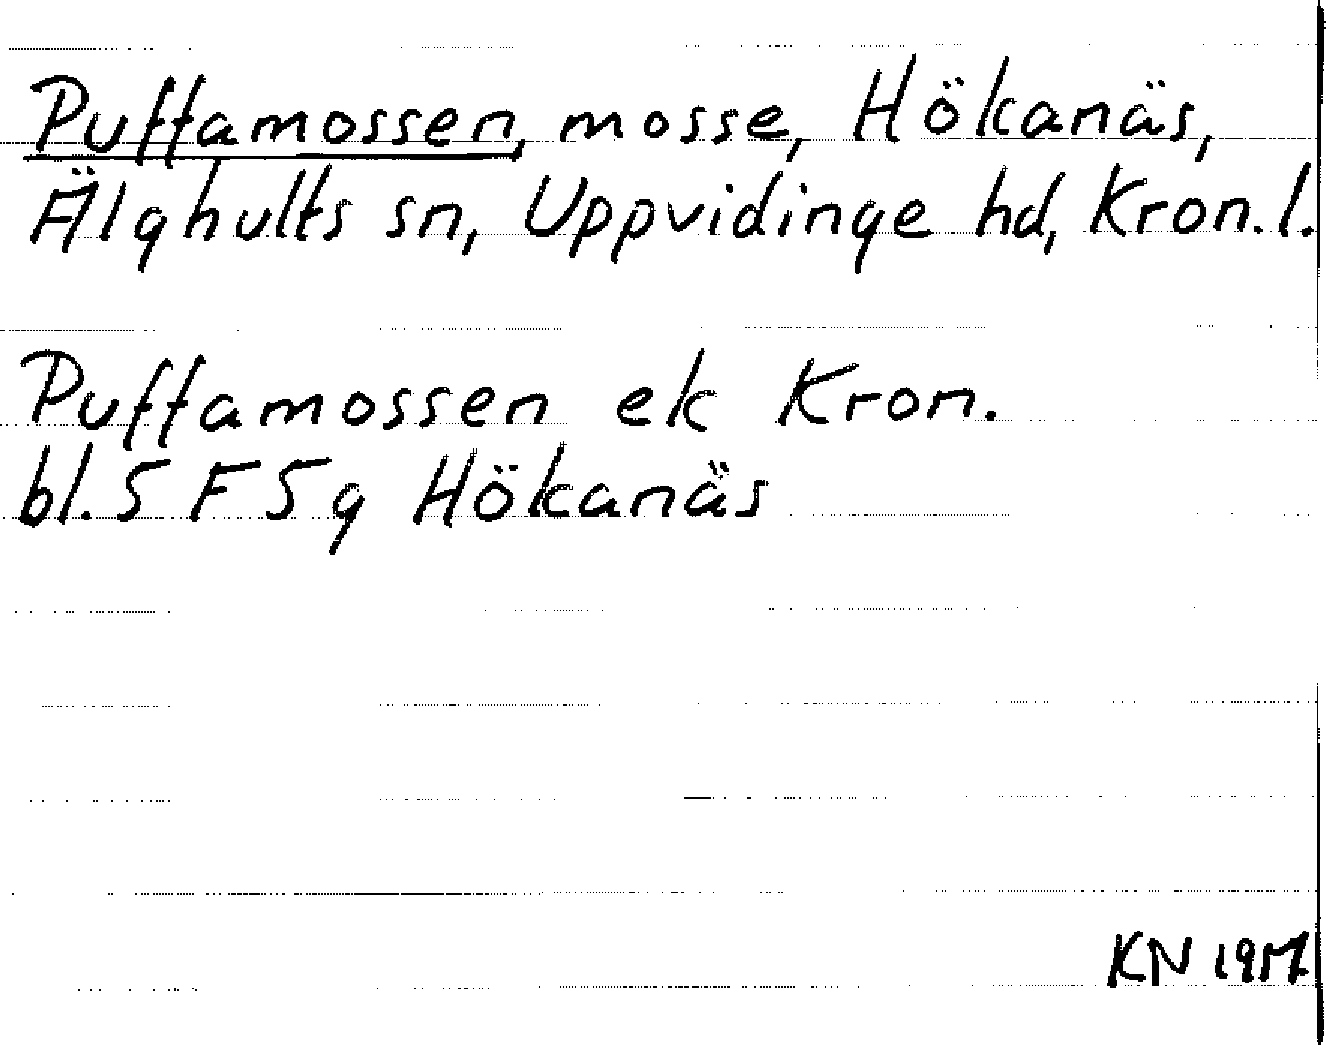 Puffamossen, mosse, Hökanäs,
Älghults sn, Uppvidinge hd, Kron. l.
Puffamossen ek Kron.
bl. 5 F 5 g Hökanäs
KN 1957